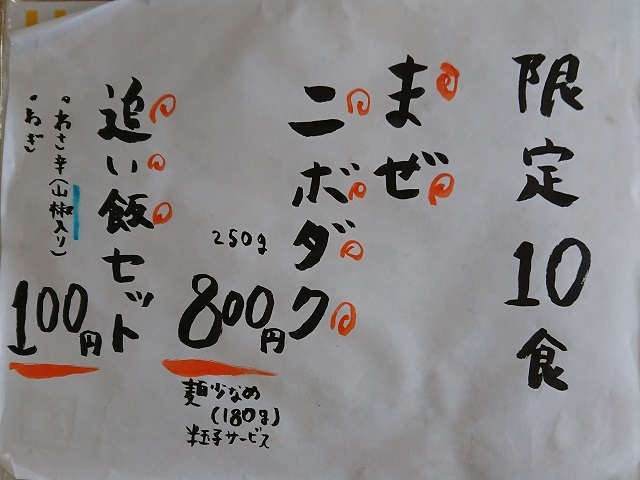 限定10食
まぜ
ニボダク
250g
800円
麺少なめ
(180g)
半玉子サービス
追い飯セット
100円
・わさ辛(山椒入り)
・ねぎ